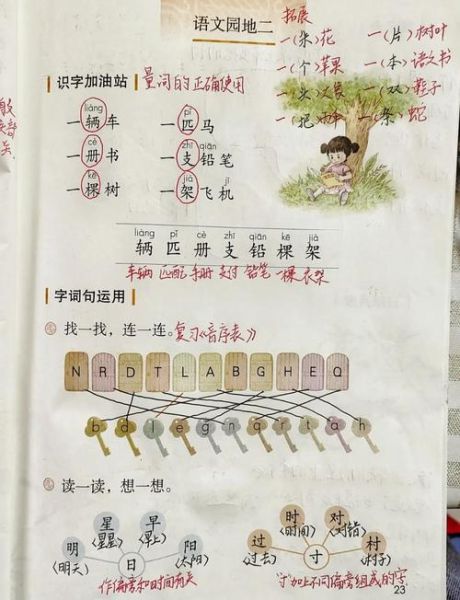 语文园地二
拓展
一(朵)花 一(片)树叶
一(个)苹果 一(本)语文书
一(头) 一(双)鞋子
一(把) 一(条)蛇
识字加油站 量词的正确使用
liàng pǐ
一辆车 一匹马
cè zhī qiān
一册书 一支铅笔
kē jià jī
一棵树 一架飞机
liàng pǐ cè zhī qiān kē jià
辆 匹 册 支 铅 棵 架
车辆 匹配 手册 支付 铅笔 一棵 衣架
字词句运用
找一找，连一连。复习《音序表》
N R D T L A B G H E Q
b d l e g n q r t a h
读一读，想一想。
星 早 时 对
(星星) (早上) (时间) (对错)
明 阳 过 村
(明天) (太阳) (过去) (村子)
日 寸
作偏旁和时间有关 "寸"加上不同偏旁组成的字
23